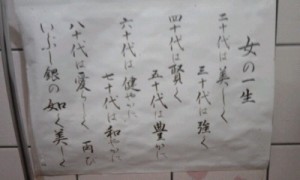 女の一生
二十代は美しく
三十代は強く
四十代は賢く
五十代は豊かに
六十代は健やかに
七十代は和やかに
八十代は愛らしく 再び
いぶし銀の如く美しく